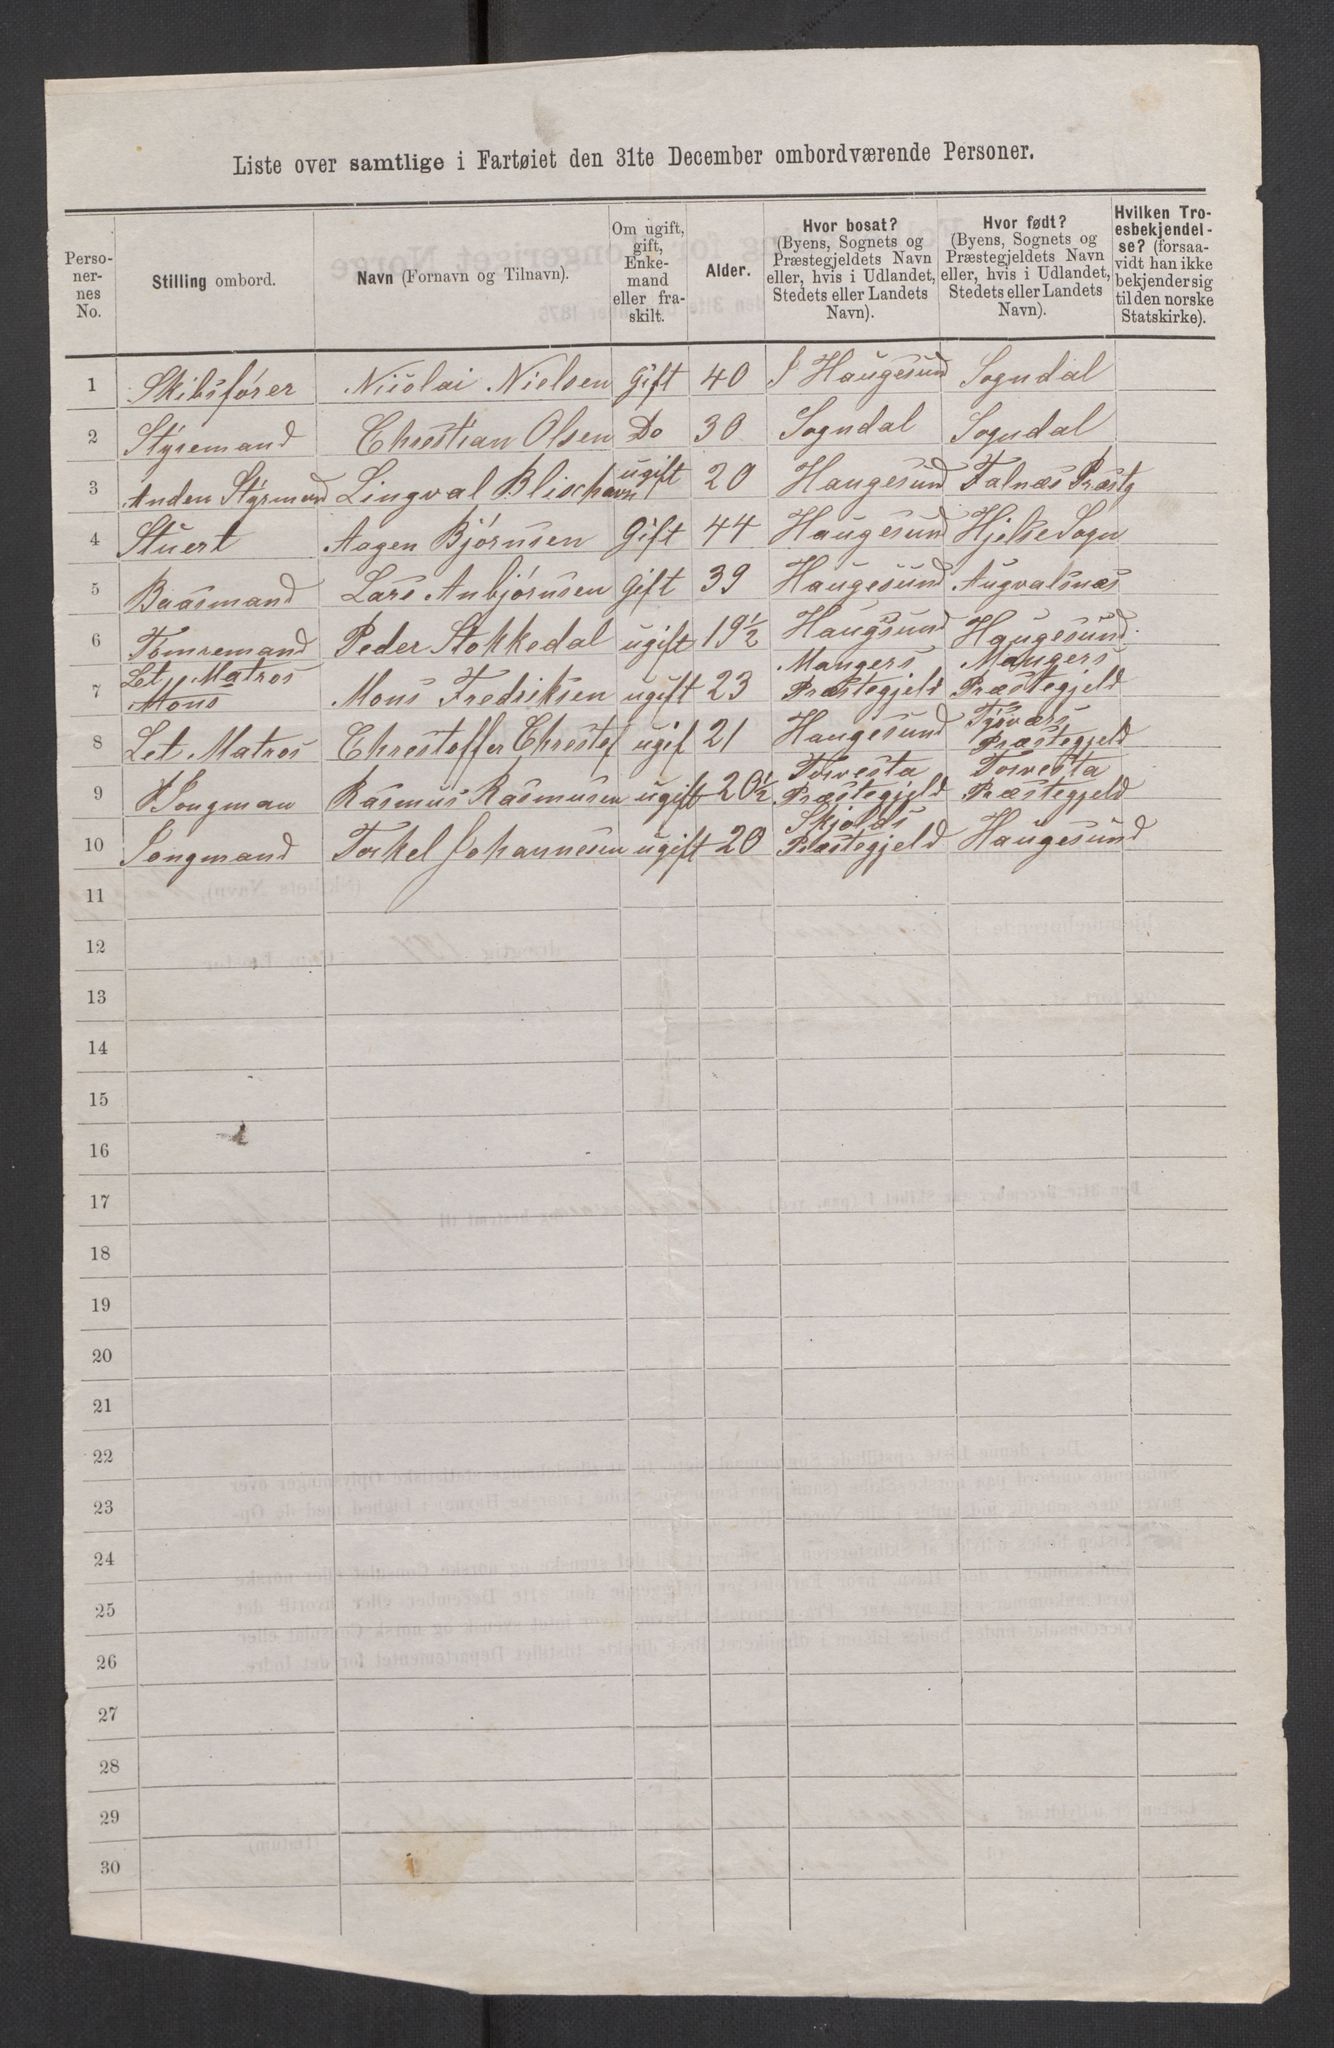 Liste over samtlige i Fartøiet den 31te December ombordværende Personer.
Perso-
ner-
nes
No.
Stilling ombord.
Navn (Fornavn og Tilnavn).
Om ugift,
gift,
Enke-
mand
eller fra-
skilt.
Alder.
Hvor bosat?
(Byens, Sognets og
Præstegjeldets Navn
eller, hvis i Udlandet,
Stedets eller Landets
Navn).
Hvor født?
(Byens, Sognets og
Præstegjeldets Navn
eller, hvis i Udlandet,
Stedets eller Landets
Navn).
Hvilken Tro-
esbekjendel-
se? (forsaa-
vidt han ikke
bekjender sig
til den norske
Statskirke).
1 Skibsfører Nicolai Nielsen Gift 40 I Haugesund Sogndal
2 Styremand Chrestian Olsen Do 30 Sogndal Sogndal
3 Anden Styrmand Lingval Blischavn ugift 20 Haugesund Falnæs Præstg
4 Stuert Aagen Bjørnsen Gift 44 Haugesund Hjelse Sogn
5 Baasmand Lars Anbjørnsen Gift 39 Haugesund Augvalsnæs
6 Tømremand Peder Stokkedal ugift 19½ Haugsund Haugesund
Let Matros Mangers Mangers
7 Mons Mons Fredriksen ugift 23 Præstegjeld Præstegjeld
8 Let Matros Chrestoffer Chrestof ugif 21 Haugesund Tysværs
Præstegjeld
Torvesta Torvesta
9 Songman Rasmus Rasmusen ugift 20½ Præstegjeld Præstegjeld
Skjolds
10 Songmand Torkel Johannesen ugift 20 Præstegjeld Haugesund
11
12
13
14
15
16
17
18
19
20
21
22
23
24
25
26
27
28
29
30